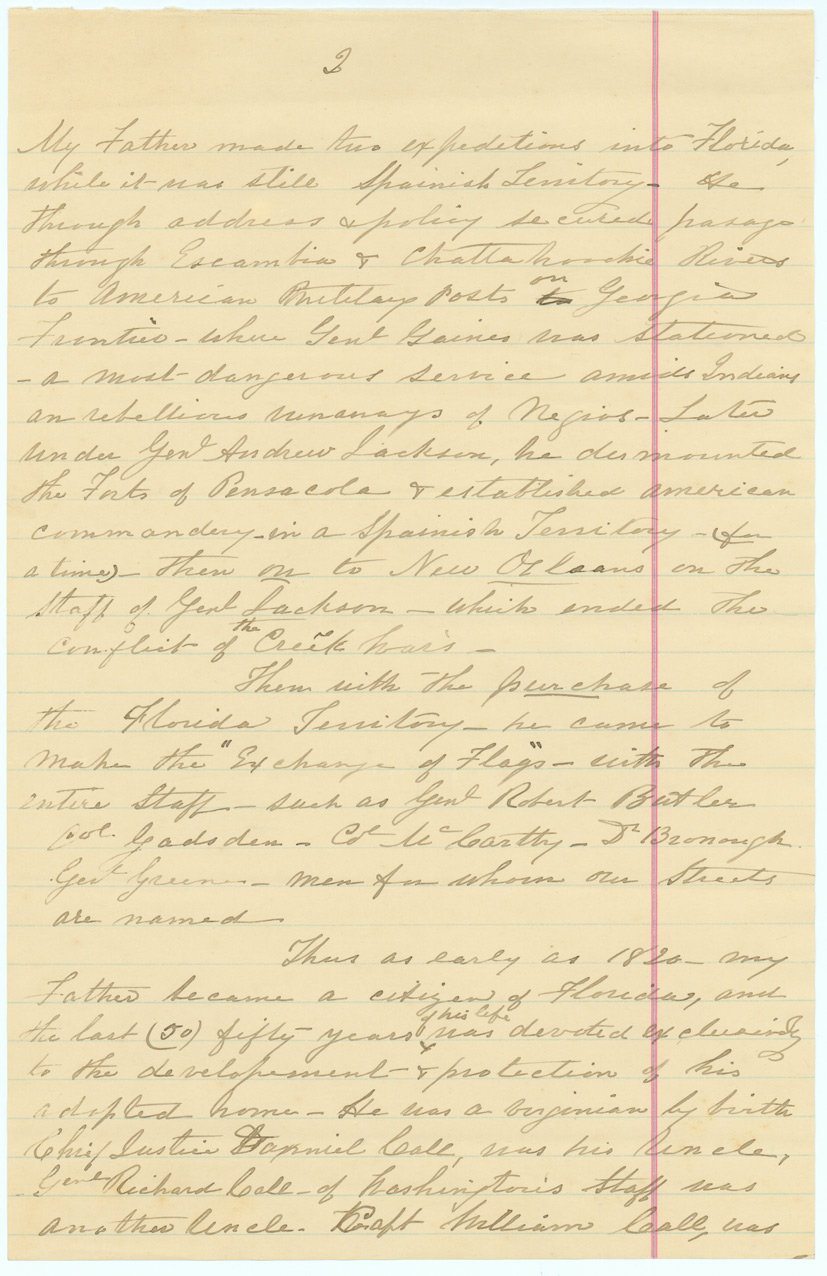 2
My Father made two expeditions into Florida,
while it was still Spainish Territory - He
through address & policy secured pasage
through Escambia & Chattahoochie Rivers
to American Military Posts on Georgia
Frontier - where Genl Gaines was stationed
- a most dangerous service amids Indians
an rebellious runaways of Negros - Later
under Genl Andrew Jackson, he dismounted
the Forts of Pensacola & established American
commandery - in a Spainish Territory - (for
a time) - then on to New Orleans on the
Staff of Genl Jackson - which ended the
conflict of the Creek Wars -
Then with the purchase of
the Florida Territory - he came to
make the "Exchange of Flags" - with the
entire Staff - such as Genl Robert Butler
Col. Gadsden - Col McCarthy - Dr Bronough.
Genl Greene - men for whom our Streets
are named
Thus as early as 1820 - my
Father became a citizen of Florida, and
the last (50) fifty years of his life was devoted exclusively
to the developement & protection of his
adopted home - He was a virginian by birth
Chief Justice Daniel Call, was his Uncle,
Genl Richard Call - of Washington's Staff was
another Uncle. Capt William Call, was